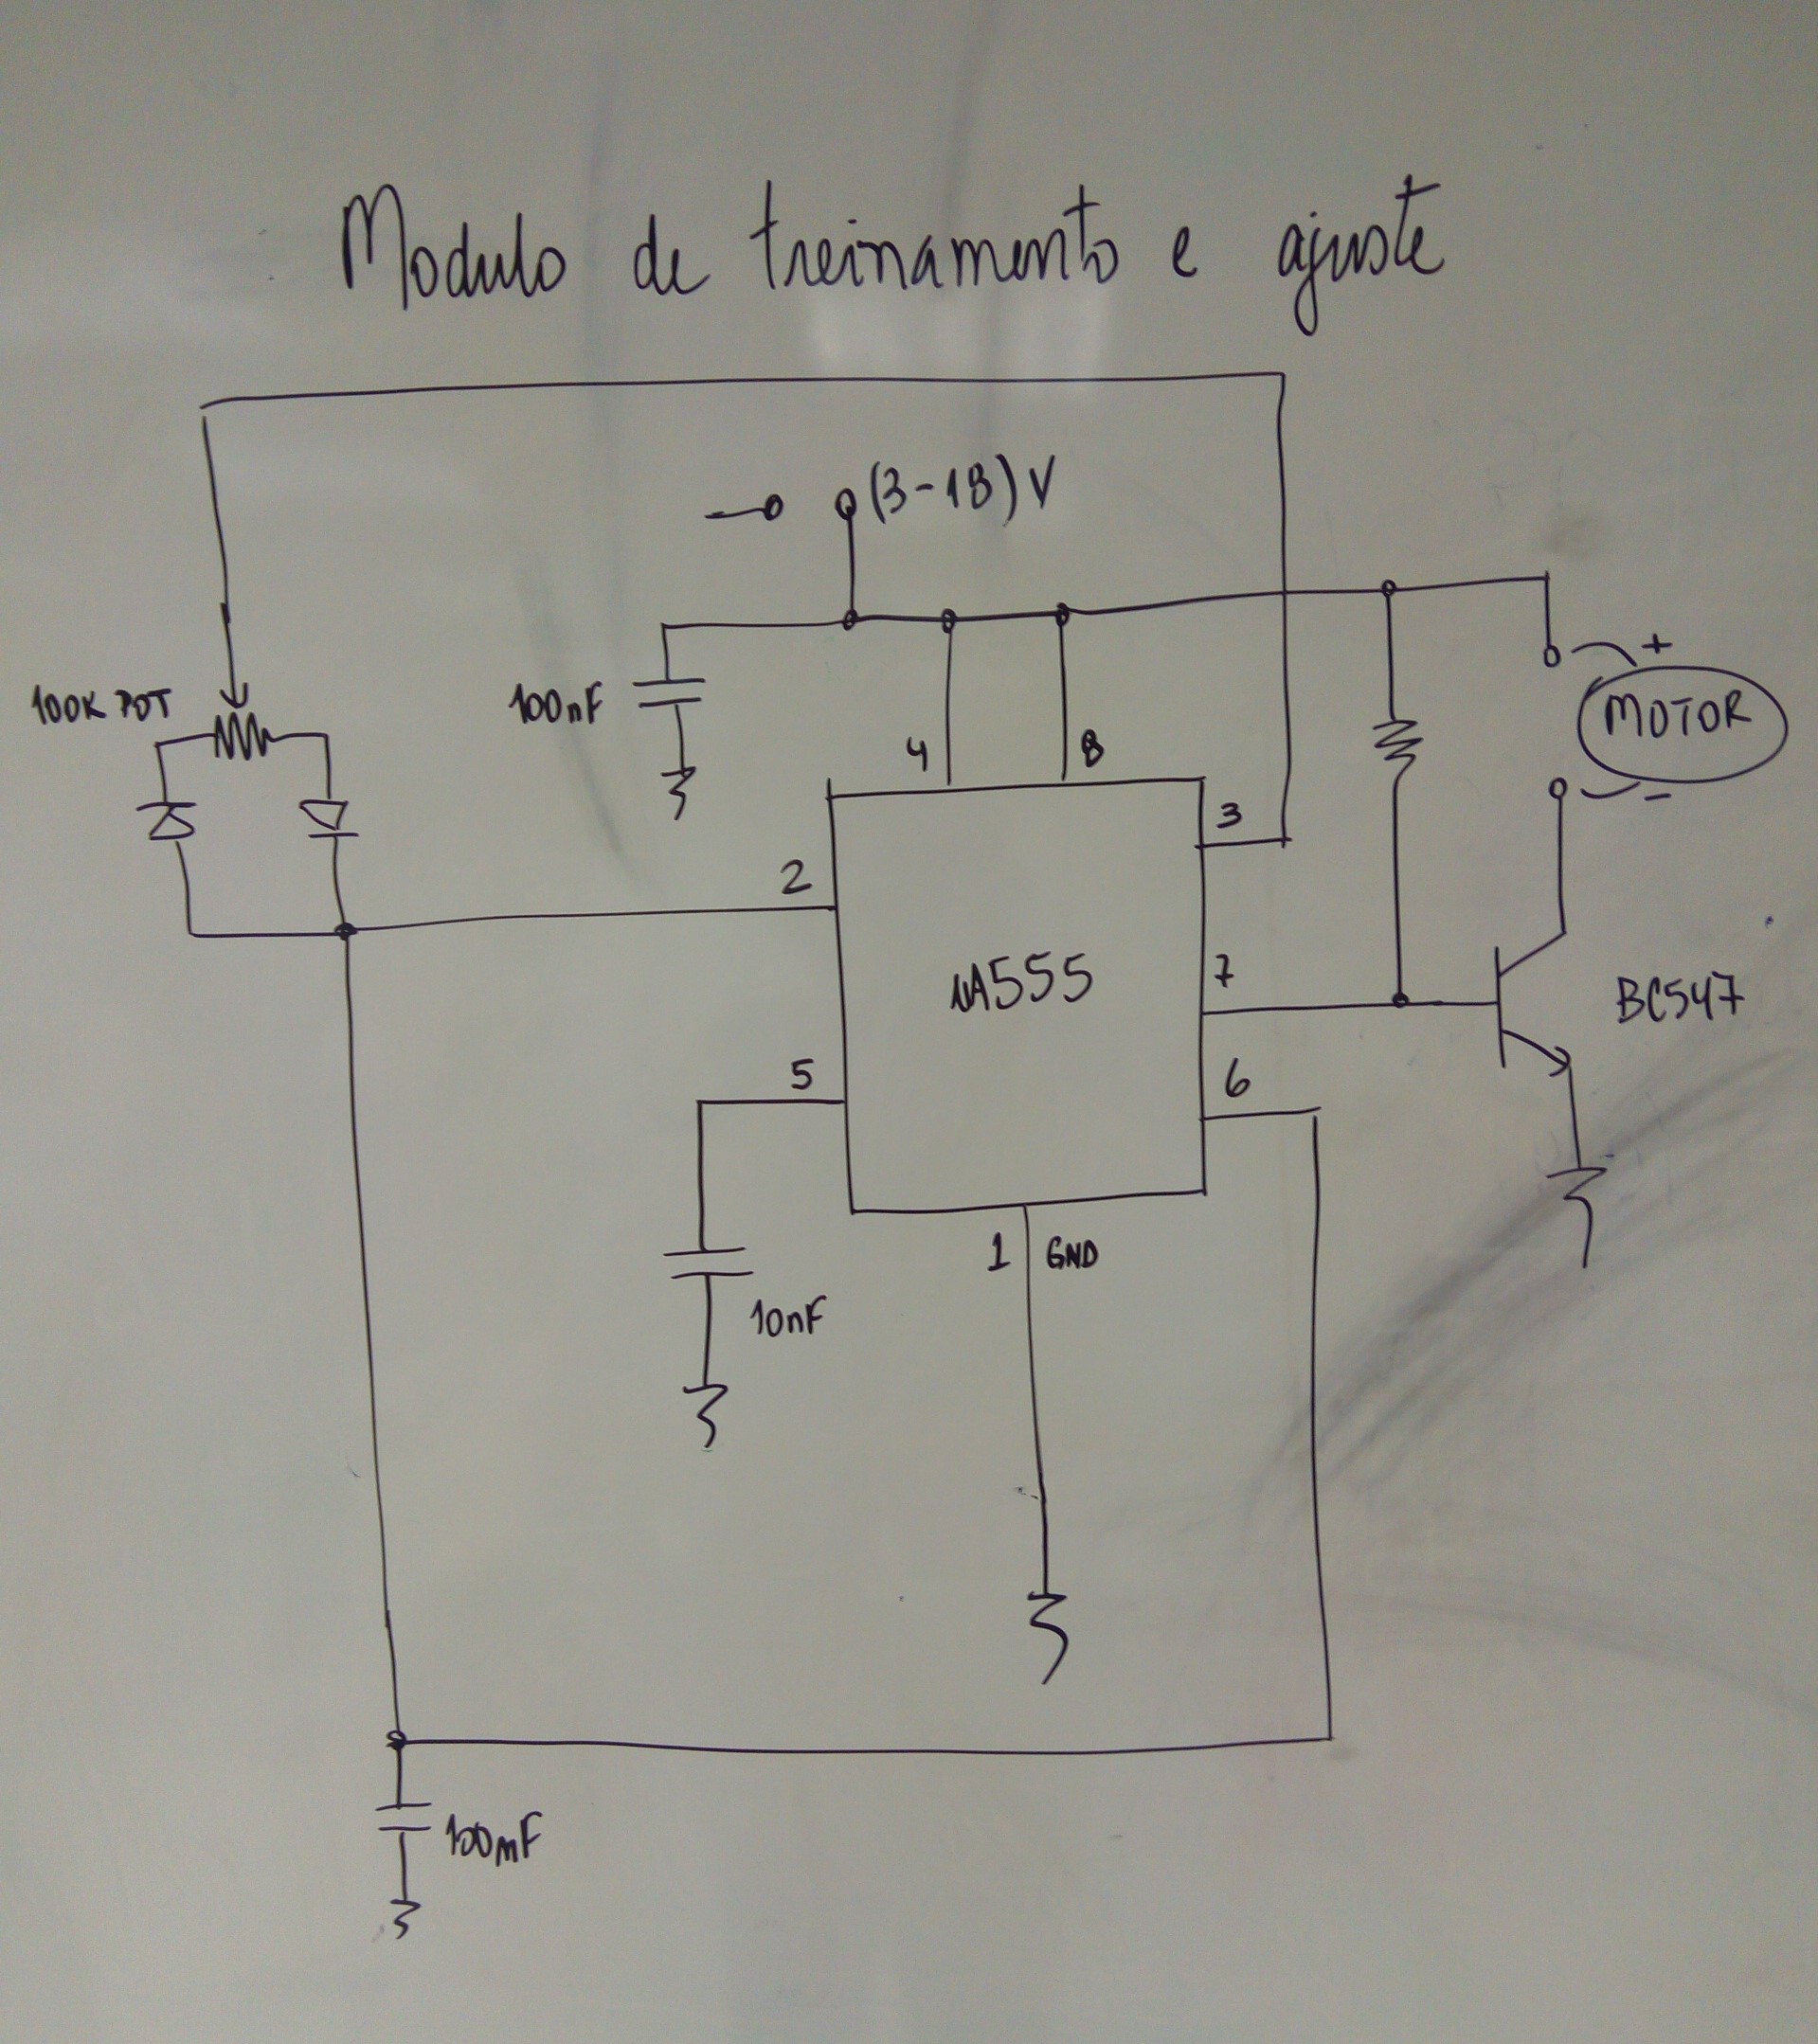 Modulo de treinamento e ajuste
(3-18)V
100K POT
100nF
4
8
+
MOTOR
-
3
2
7
uA555
BC547
5
6
1 GND
10nF
100mF